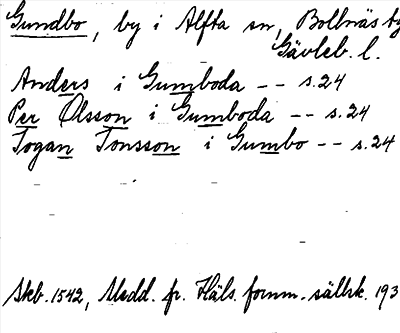 Gundbo, by i Alfta sn, Bollnäs
Gävleb. l.
Anders i Gumboda -- s.24
Per Olsson i Gumboda -- s.24
Jogan Jonsson i Gumbo -- s.24
Skb. 1542, Medd. fr. Häls. fornm. sällsk. 193